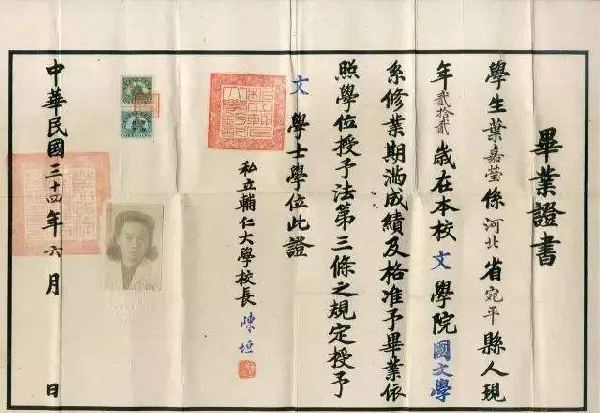 畢業證書
學生葉嘉瑩係河北省宛平縣人現
年貳拾貳歲在本校文學院國文學
系修業期滿成績及格准予畢業依
照學位授予法第三條之規定授予
文學士學位此證
私立輔仁大學校長陳垣
中華民國三十四年六月 日